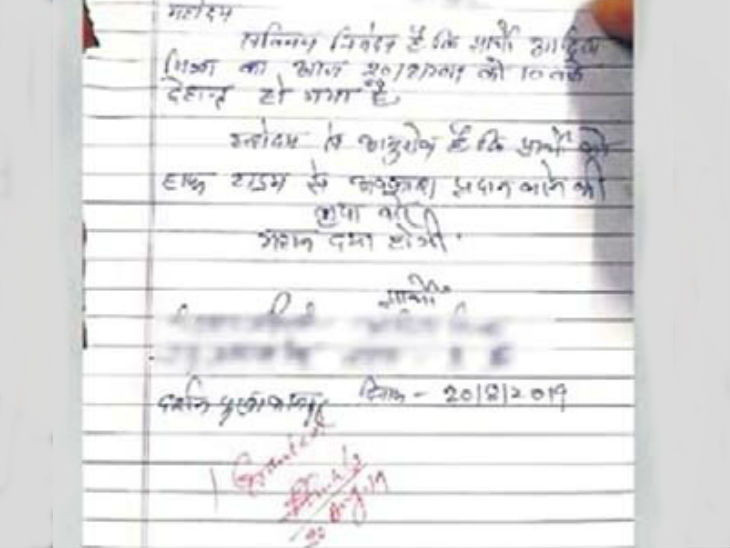 महोदय
सविनय निवेदन है कि प्रार्थी
का आज 20/8/2019 को 10 बजे
देहान्त हो गया है
महोदय से अनुरोध है कि प्रार्थी को
हाफ टाइम से अवकाश प्रदान करने की
कृपा करें
महान दया होगी
प्रार्थी
दिनांक - 20/8/2019
Granted
20 Aug 19